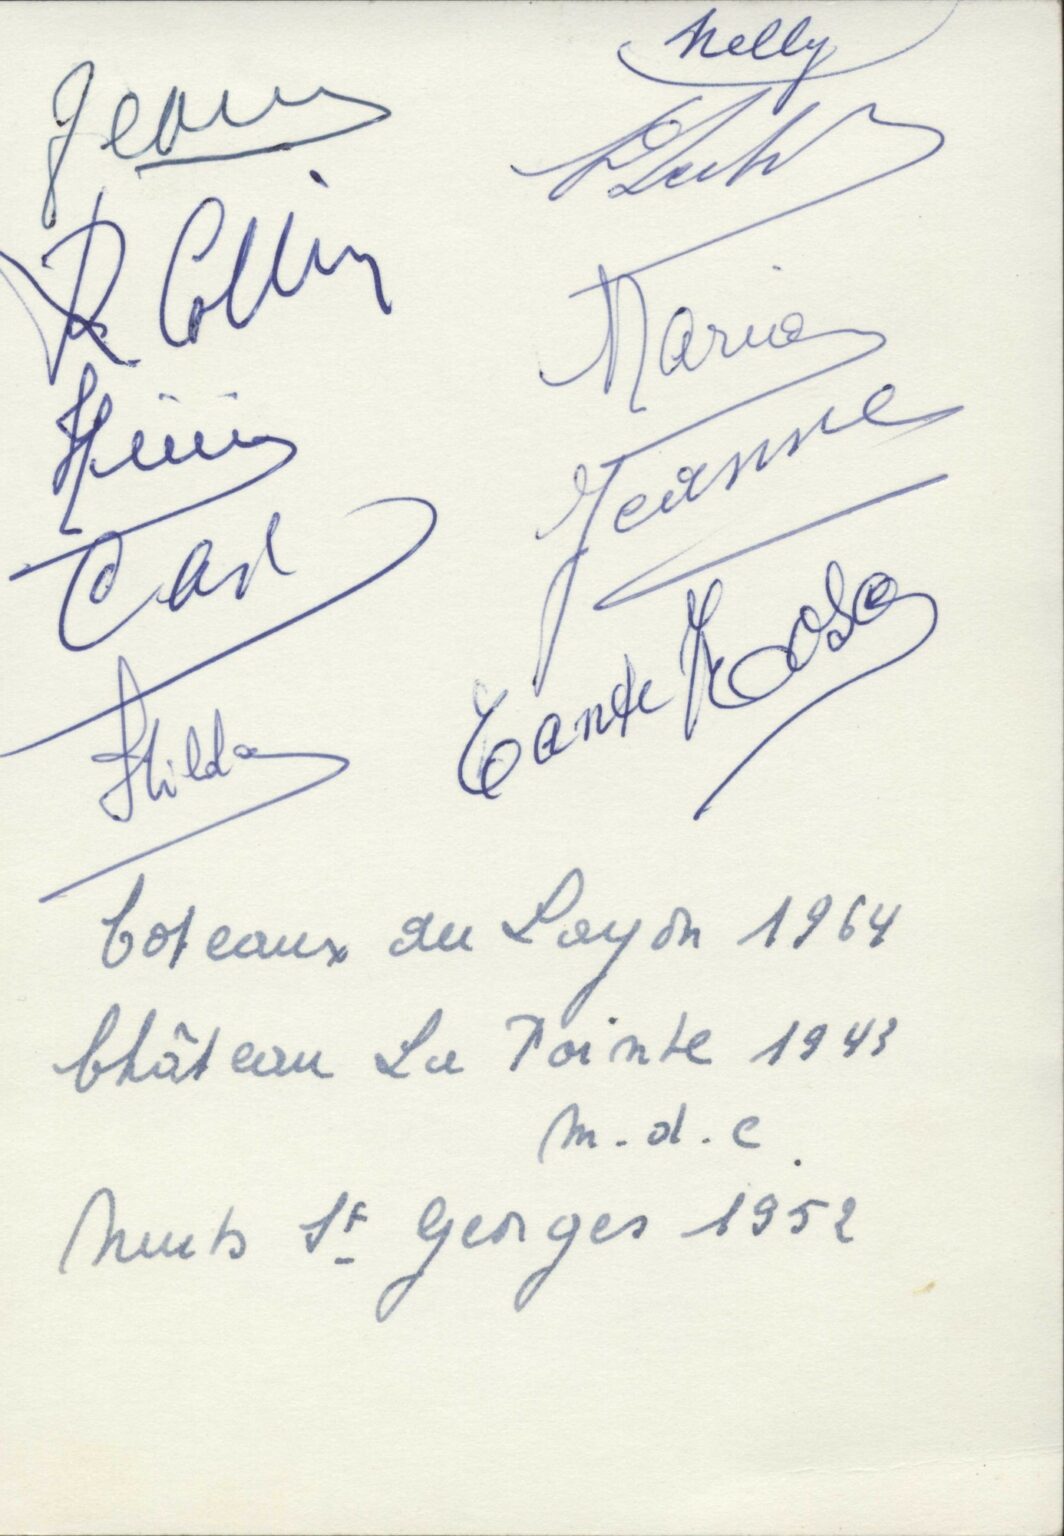 Nelly
Jean
R Collin
Maria
Jeanne
Carl
Tante Rosa
Hilda
Coteaux du Layon 1964
Château La Pointe 1943
m.d.c.
Nuits St Georges 1952